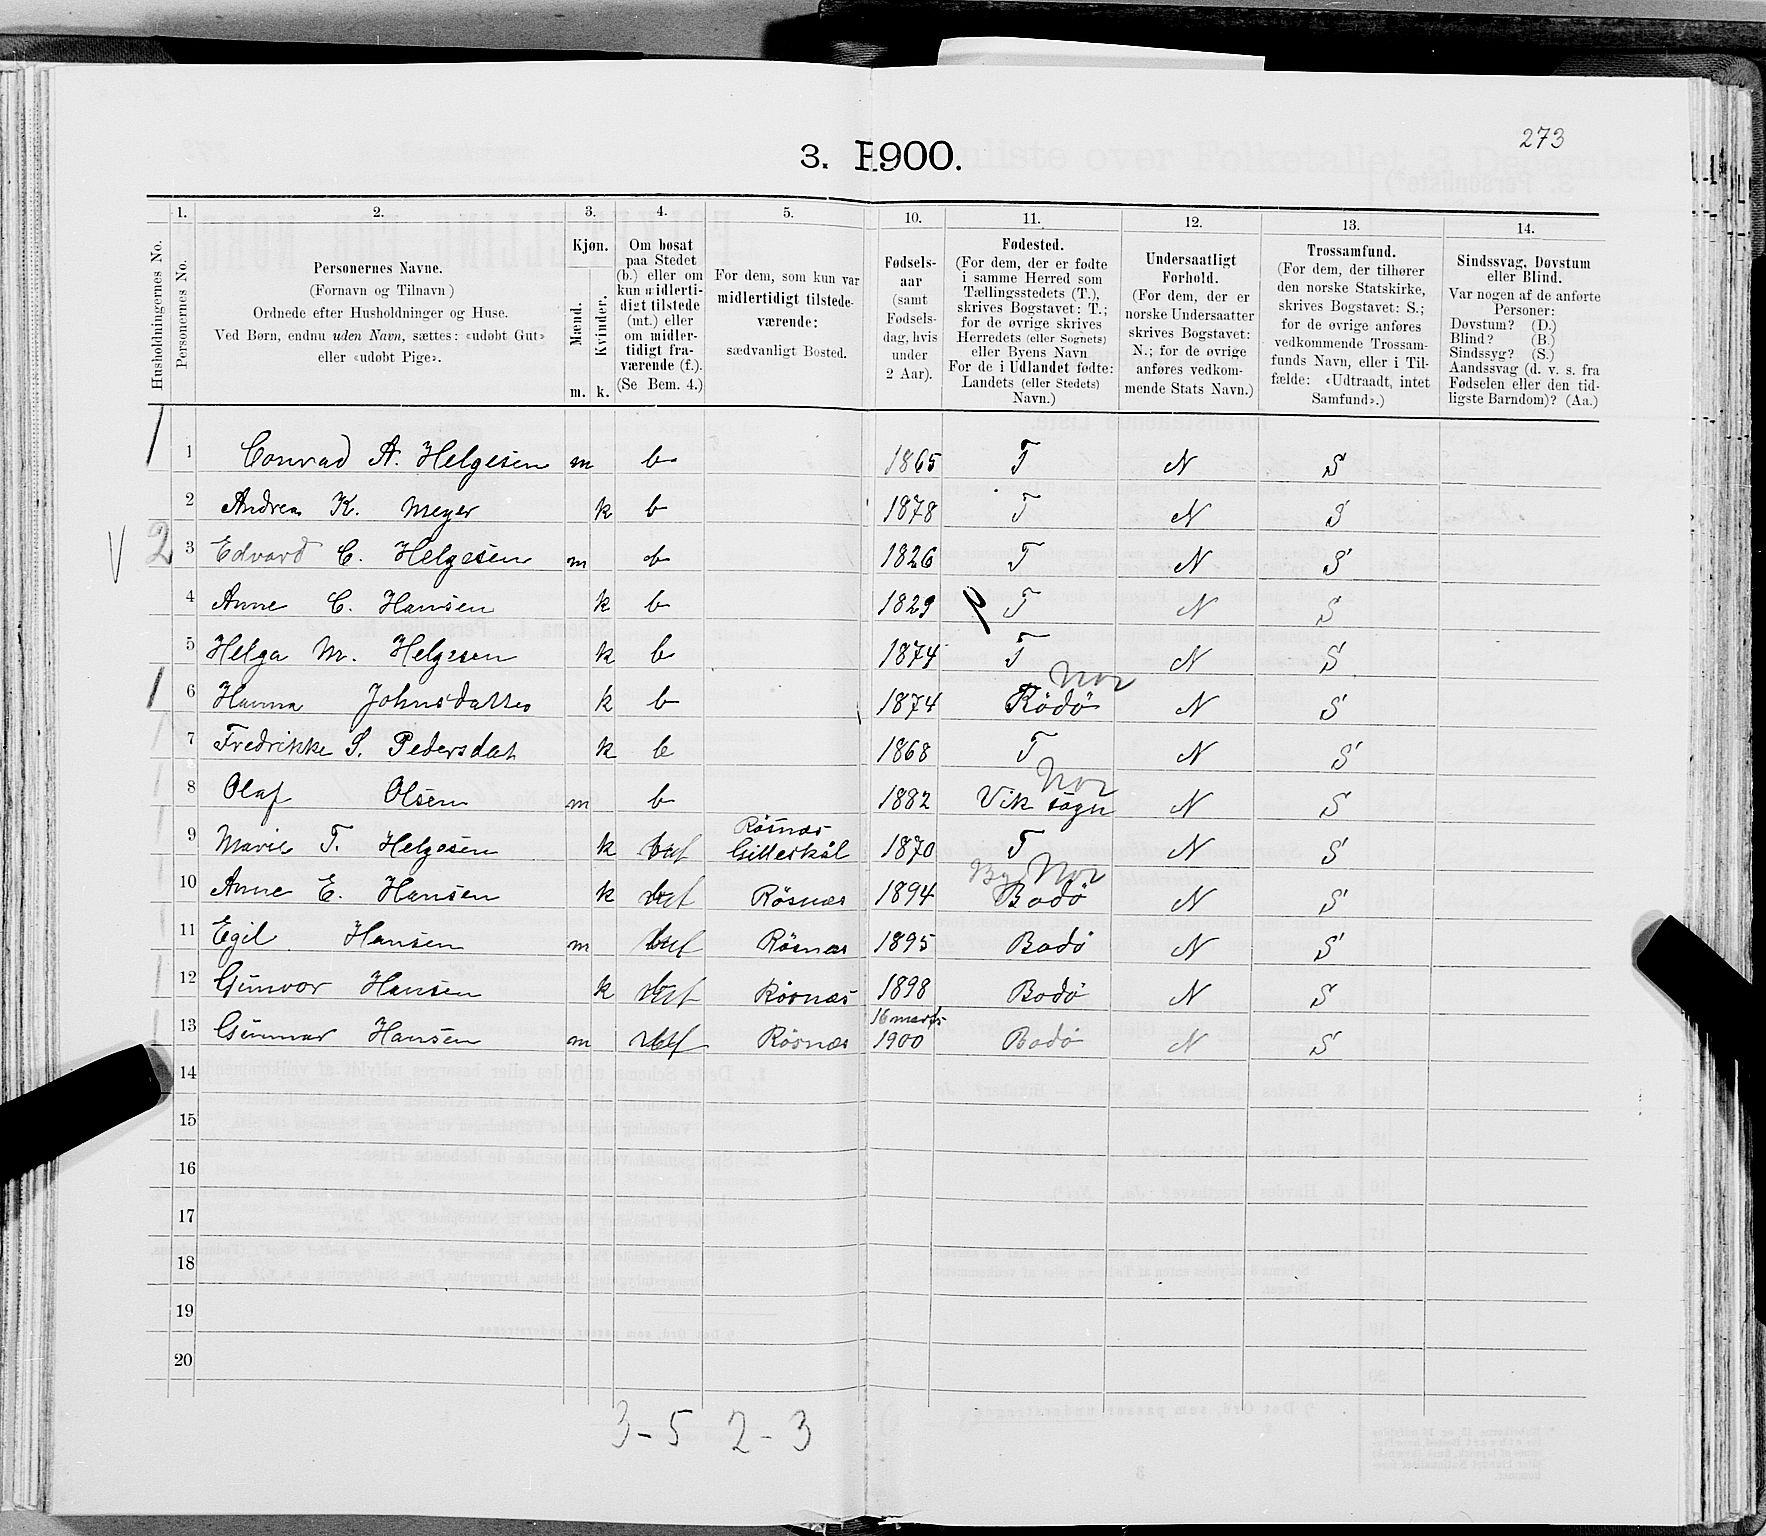 273
3. 1900.
1. 2. 3. 4. 5. 10. 11. 12. 13. 14.
Husholdningernes No.
Personernes No.
Personernes Navne.
(Fornavn og Tilnavn)
Ordnede efter Husholdninger og Huse.
Ved Børn, endnu uden Navn, sættes: «udøbt Gut»
eller «udøbt Pige».
Kjøn.
Mænd.
Kvinder.
m. k.
Om bosat
paa Stedet
(b.) eller om
kun midlerti-
digt tilstede
(mt.) eller
om midler-
tidigt fra-
værende (f.).
(Se Bem. 4.)
For dem, som kun var
midlertidigt tilstede-
værende:
sædvanligt Bosted.
Fødsels-
aar
(samt
Fødsels-
dag, hvis
under
2 Aar).
Fødested.
(For dem, der er fødte
i samme Herred som
Tællingsstedets (T.),
skrives Bogstavet: T.;
for de øvrige skrives
Herredets (eller Sognets)
eller Byens Navn
For de i Udlandet fødte:
Landets (eller Stedets)
Navn.)
Undersaatligt
Forhold.
(For dem, der er
norske Undersaatter
skrives Bogstavet:
N.; for de øvrige
anføres vedkom-
mende Stats Navn.)
Trossamfund.
(For dem, der tilhører
den norske Statskirke,
skrives Bogstavet: S.;
for de øvrige anføres
vedkommende Trossam-
funds Navn, eller i Til-
fælde: «Udtraadt, intet
Samfund».)
Sindssvag, Døvstum
eller Blind.
Var nogen af de anførte
Personer:
Døvstum? (D.)
Blind? (B.)
Sindssyg? (S.)
Aandssvag (d. v. s. fra
Fødselen eller den tid-
ligste Barndom)? (Aa.)
1 1 Conrad A. Helgesen m b 1865 T N S
2 Andrea K. Meyer k b 1878 T N S
V 2 3 Edvard C. Helgesen m b 1826 T N S
4 Anne C. Hansen k b 1829 T N S
5 Helga M. Helgesen k b 1874 T N S
Nor
1 6 Hanna Johnsdatter k b 1874 Rödø N S
7 Fredrikke S. Pedersdat k b 1868 T N S
Nor
8 Olaf Olsen m b 1882 Vik sogn N S
Røsnæs
9 Marie T. Helgesen k Gilleskål 1870 T N S
By Nor
10 Anne E. Hansen k Røsnæs 1894 Bodø N S
11 Egil Hansen m Røsnæs 1895 Bodø N S
12 Gunvor Hansen k Røsnæs 1898 Bodø N S
16 marts
13 Gunnar Hansen m Røsnæs 1900 Bodø N S
14
15
16
17
18
19
20
3-5 2-3